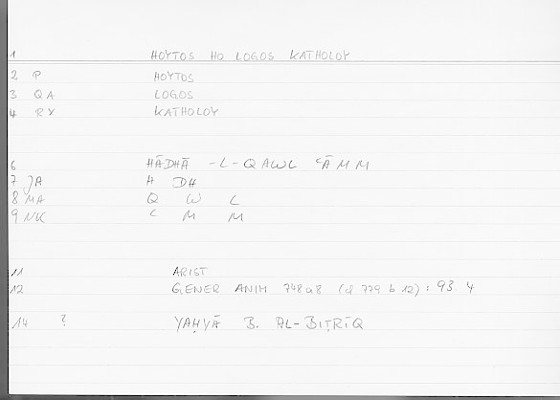 1 HOYTOS HO LOGOS KATHOLOY
2 P HOYTOS
3 QA LOGOS
4 RY KATHOLOY
6 HĀDHĀ -L-QAWL ʿĀMM
7 JA H DH
8 MA Q W L
9 NK ʿ M M
11 ARIST
12 GENER ANIM 748a8 (d 779 b 12): 93 4
14 ? YAḤYĀ B. AL-BIṬRĪQ